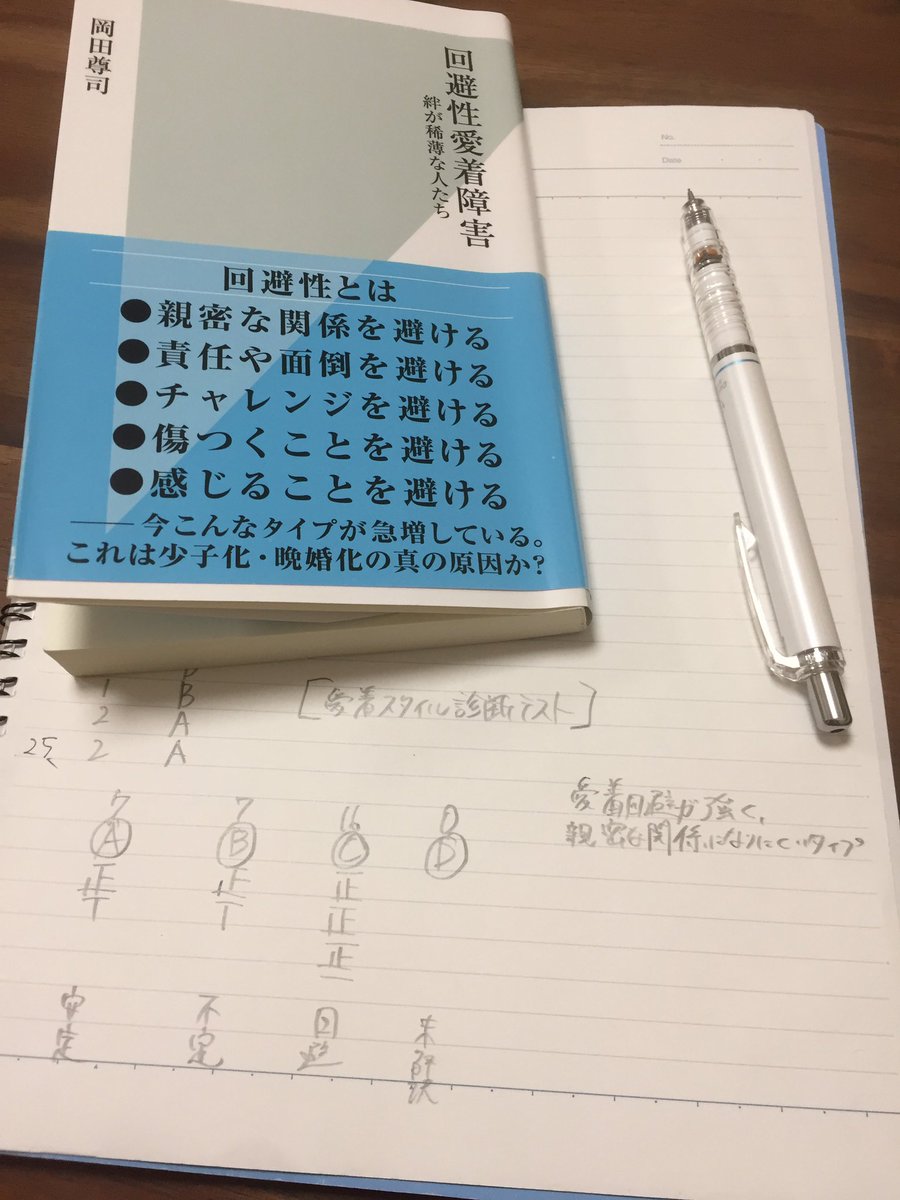 岡田尊司
回避性愛着障害
絆が稀薄な人たち
回避性とは
●親密な関係を避ける
●責任や面倒を避ける
●チャレンジを避ける
●傷つくことを避ける
●感じることを避ける
――今こんなタイプが急増している。
これは少子化・晩婚化の真の原因か?
No.
Date
1 B
2 A
2 A
[愛着スタイル診断テスト]
愛着回避が強く、
親密な関係になりにくいタイプ
7 7 16 0
A B C D
正 正 正
T 正
正
安定 不定 回避 未解決